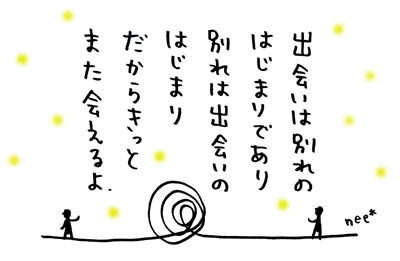 出会いは別れの
はじまりであり
別れは出会いの
はじまり
だからきっと
また会えるよ.
nee*